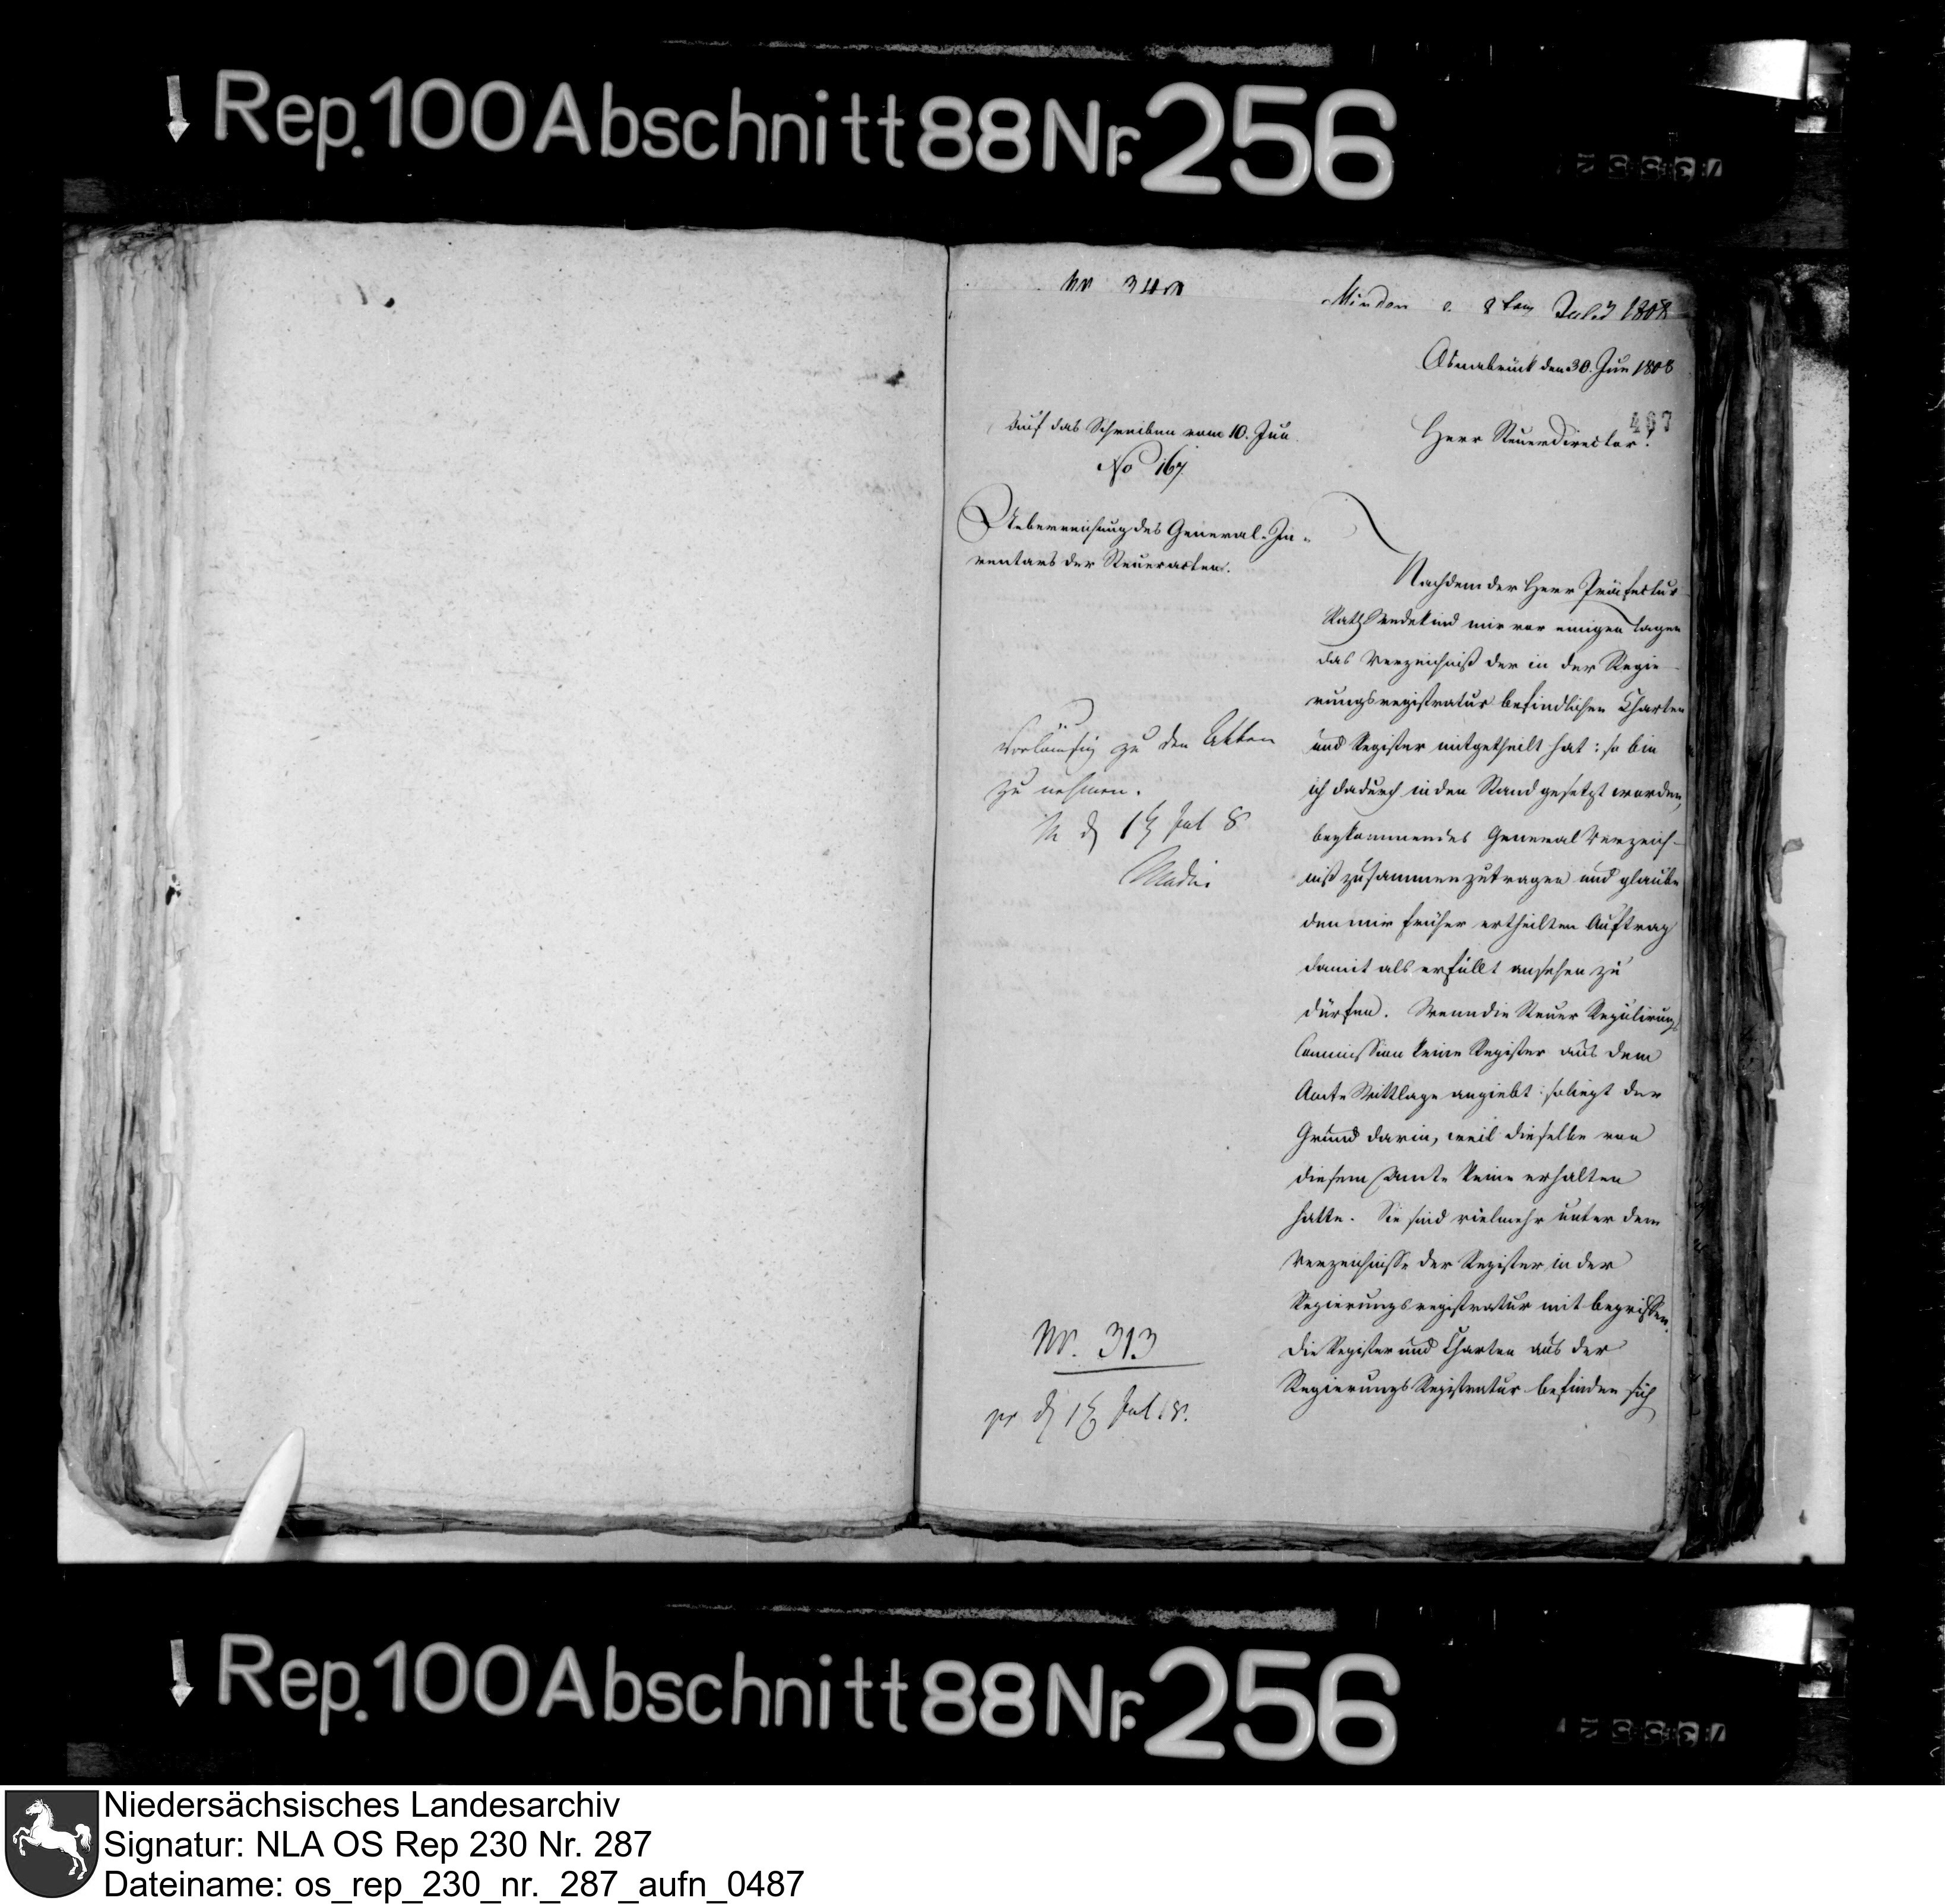 Rep. 100 Abschnitt 88 Nr. 256
Minden d. 8ten July 1808
Osnabrück den 30. Jun 1808
467
Auf das Schreiben vom 10. Jun.
No 167
Herr Steuerdirector!
Ueberreichung des General-In-
ventars der Steueracten.
Nachdem der Herr Präfectur
Rath Wedekind mir vor einigen Tagen
das Verzeichniß der in der Regie-
rungsregistratur befindlichen Charten
und Register mitgetheilt hat: so bin
ich dadurch in den Stand gesetzt worden,
beykommendes General Verzeich-
niß zusammenzutragen und glaube
den mir früher ertheilten Auftrag
damit als erfüllt ansehen zu
dürfen. Wenn die Steuer Regulirungs
Commission keine Register aus dem
Amte Wittlage angiebt: so liegt der
Grund darin, weil dieselbe von
diesem Amte keine erhalten
hatte. Sie sind vielmehr unter dem
Verzeichnisse der Register in der
Regierungsregistratur mit begriffen.
Die Register und Charten aus der
Regierungs Registratur befinden sich
Vorläufig zu den Akten
zu nehmen.
Jul 8
Nr. 313
pr d Jul 8.
Rep. 100 Abschnitt 88 Nr. 256
Niedersächsisches Landesarchiv
Signatur: NLA OS Rep 230 Nr. 287
Dateiname: os_rep_230_nr._287_aufn_0487